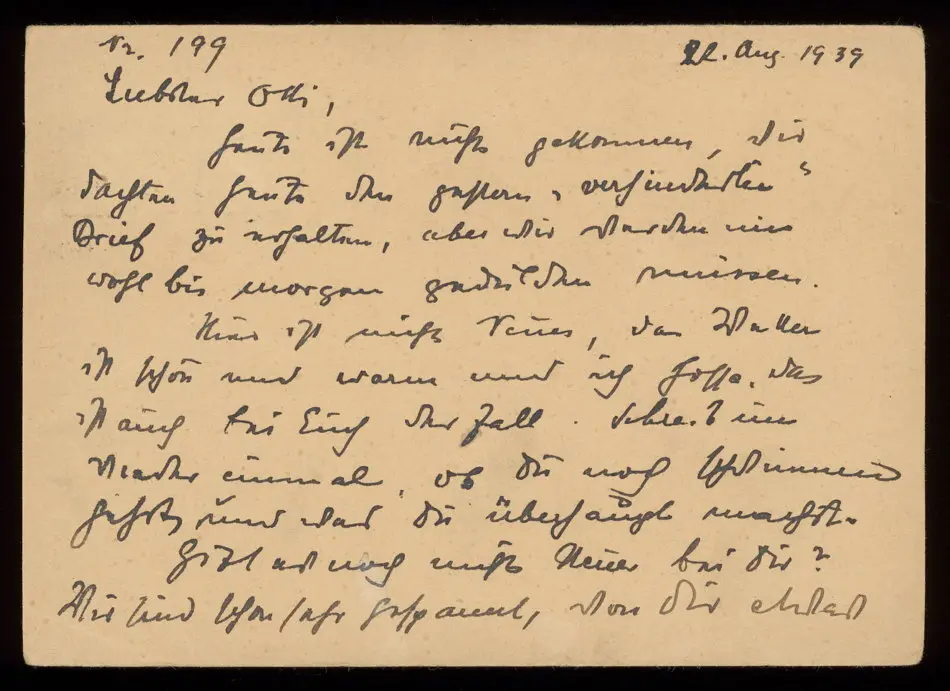 Nr. 199
22. Aug. 1939
Liebster Otti,
heute ist nichts gekommen, wir
dachten heute den gestern "verhinderten"
Brief zu erhalten, aber wir werden uns
wohl bis morgen gedulden müssen.
Hier ist nichts Neues, das Wetter
ist schön und warm und ich hoffe, das
ist auch bei Euch der Fall. Schreib uns
wieder einmal, ob Du noch schwimmen
gehst, und was Du überhaupt machst.
Gibt es noch nichts Neues bei Dir?
Wir sind schon sehr gespannt, von Dir etwas